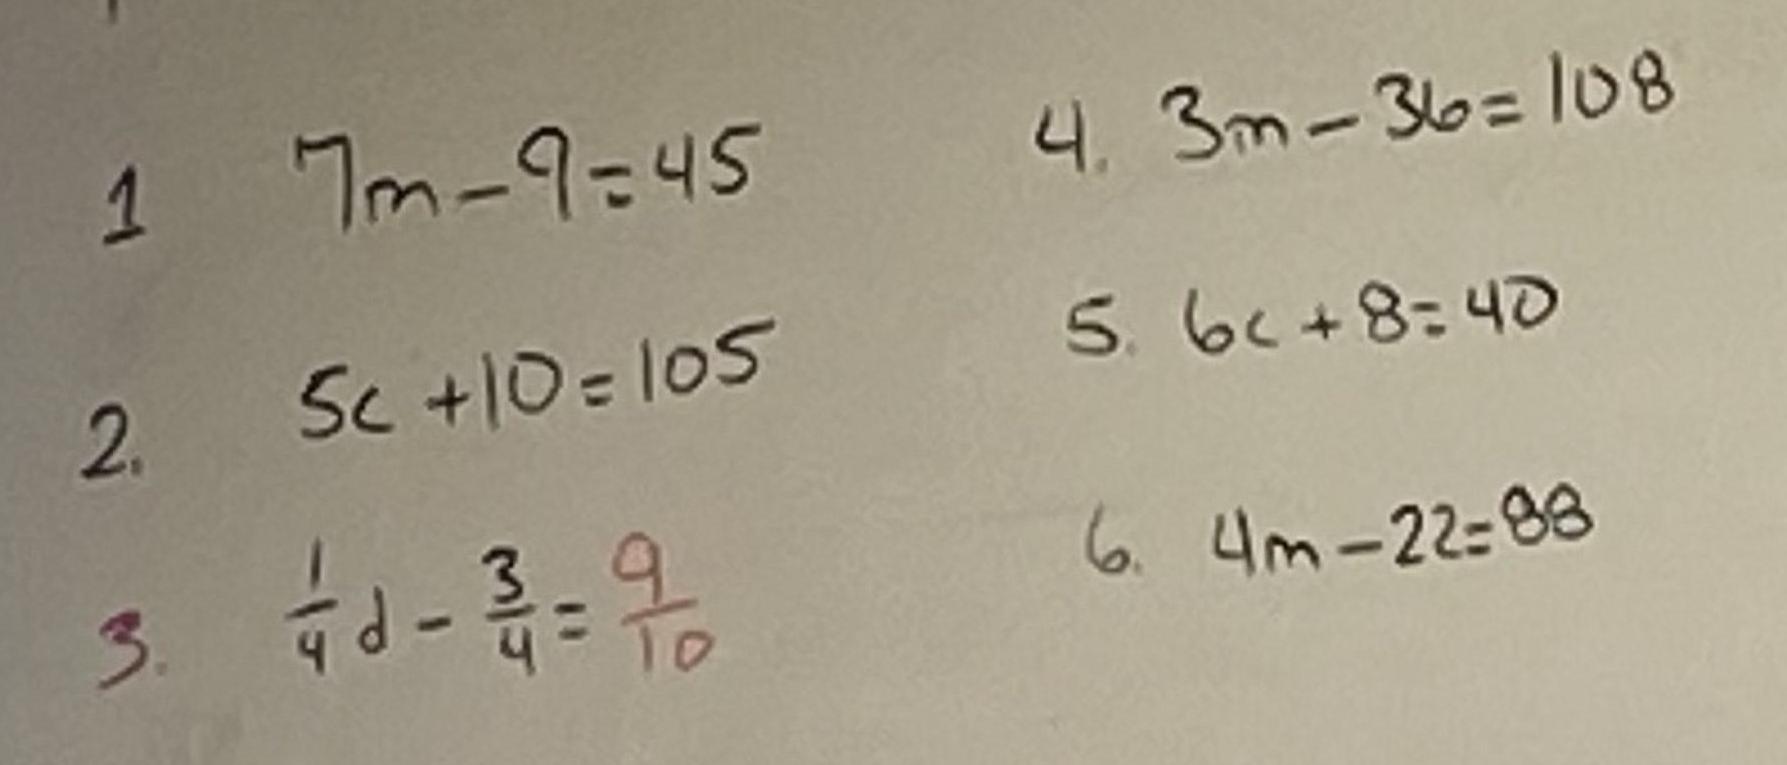 1 7m - 9 = 45
2. 5c + 10 = 105
3. 1/4 d - 3/4 = 9/10
4. 3m - 36 = 108
5. 6c + 8 = 40
6. 4m - 22 = 88